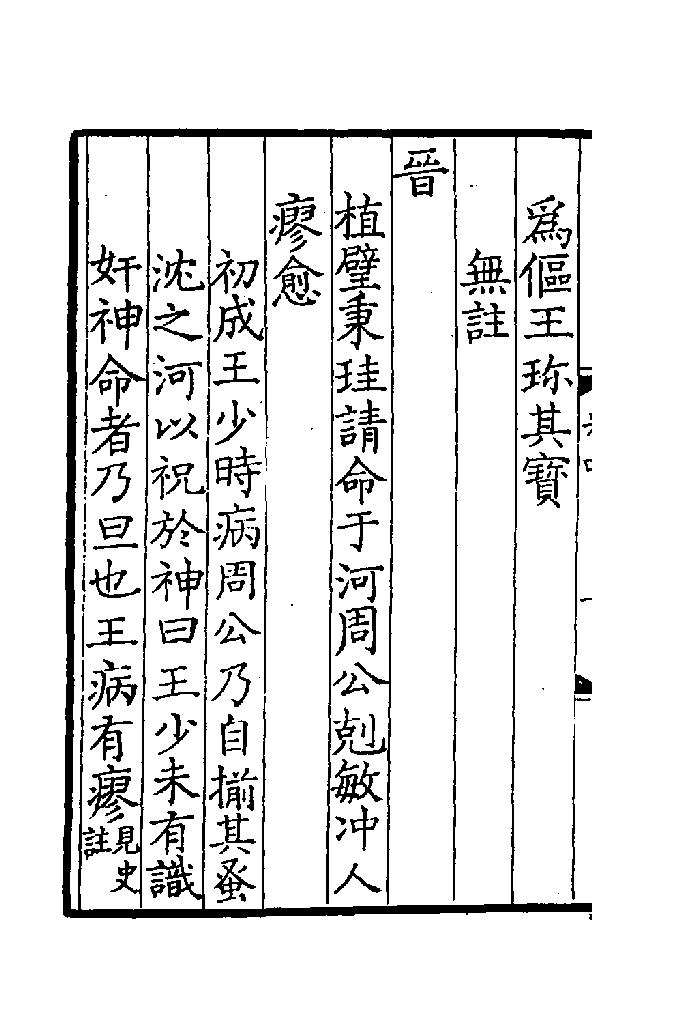 爲傴王珎其寳
無註
晉
植璧秉珪請命于河周公剋敏冲人
瘳愈
初成王少時病周公乃自揃其蚤
沈之河以祝於神曰王少未有識
奸神命者乃旦也王病有瘳見史註